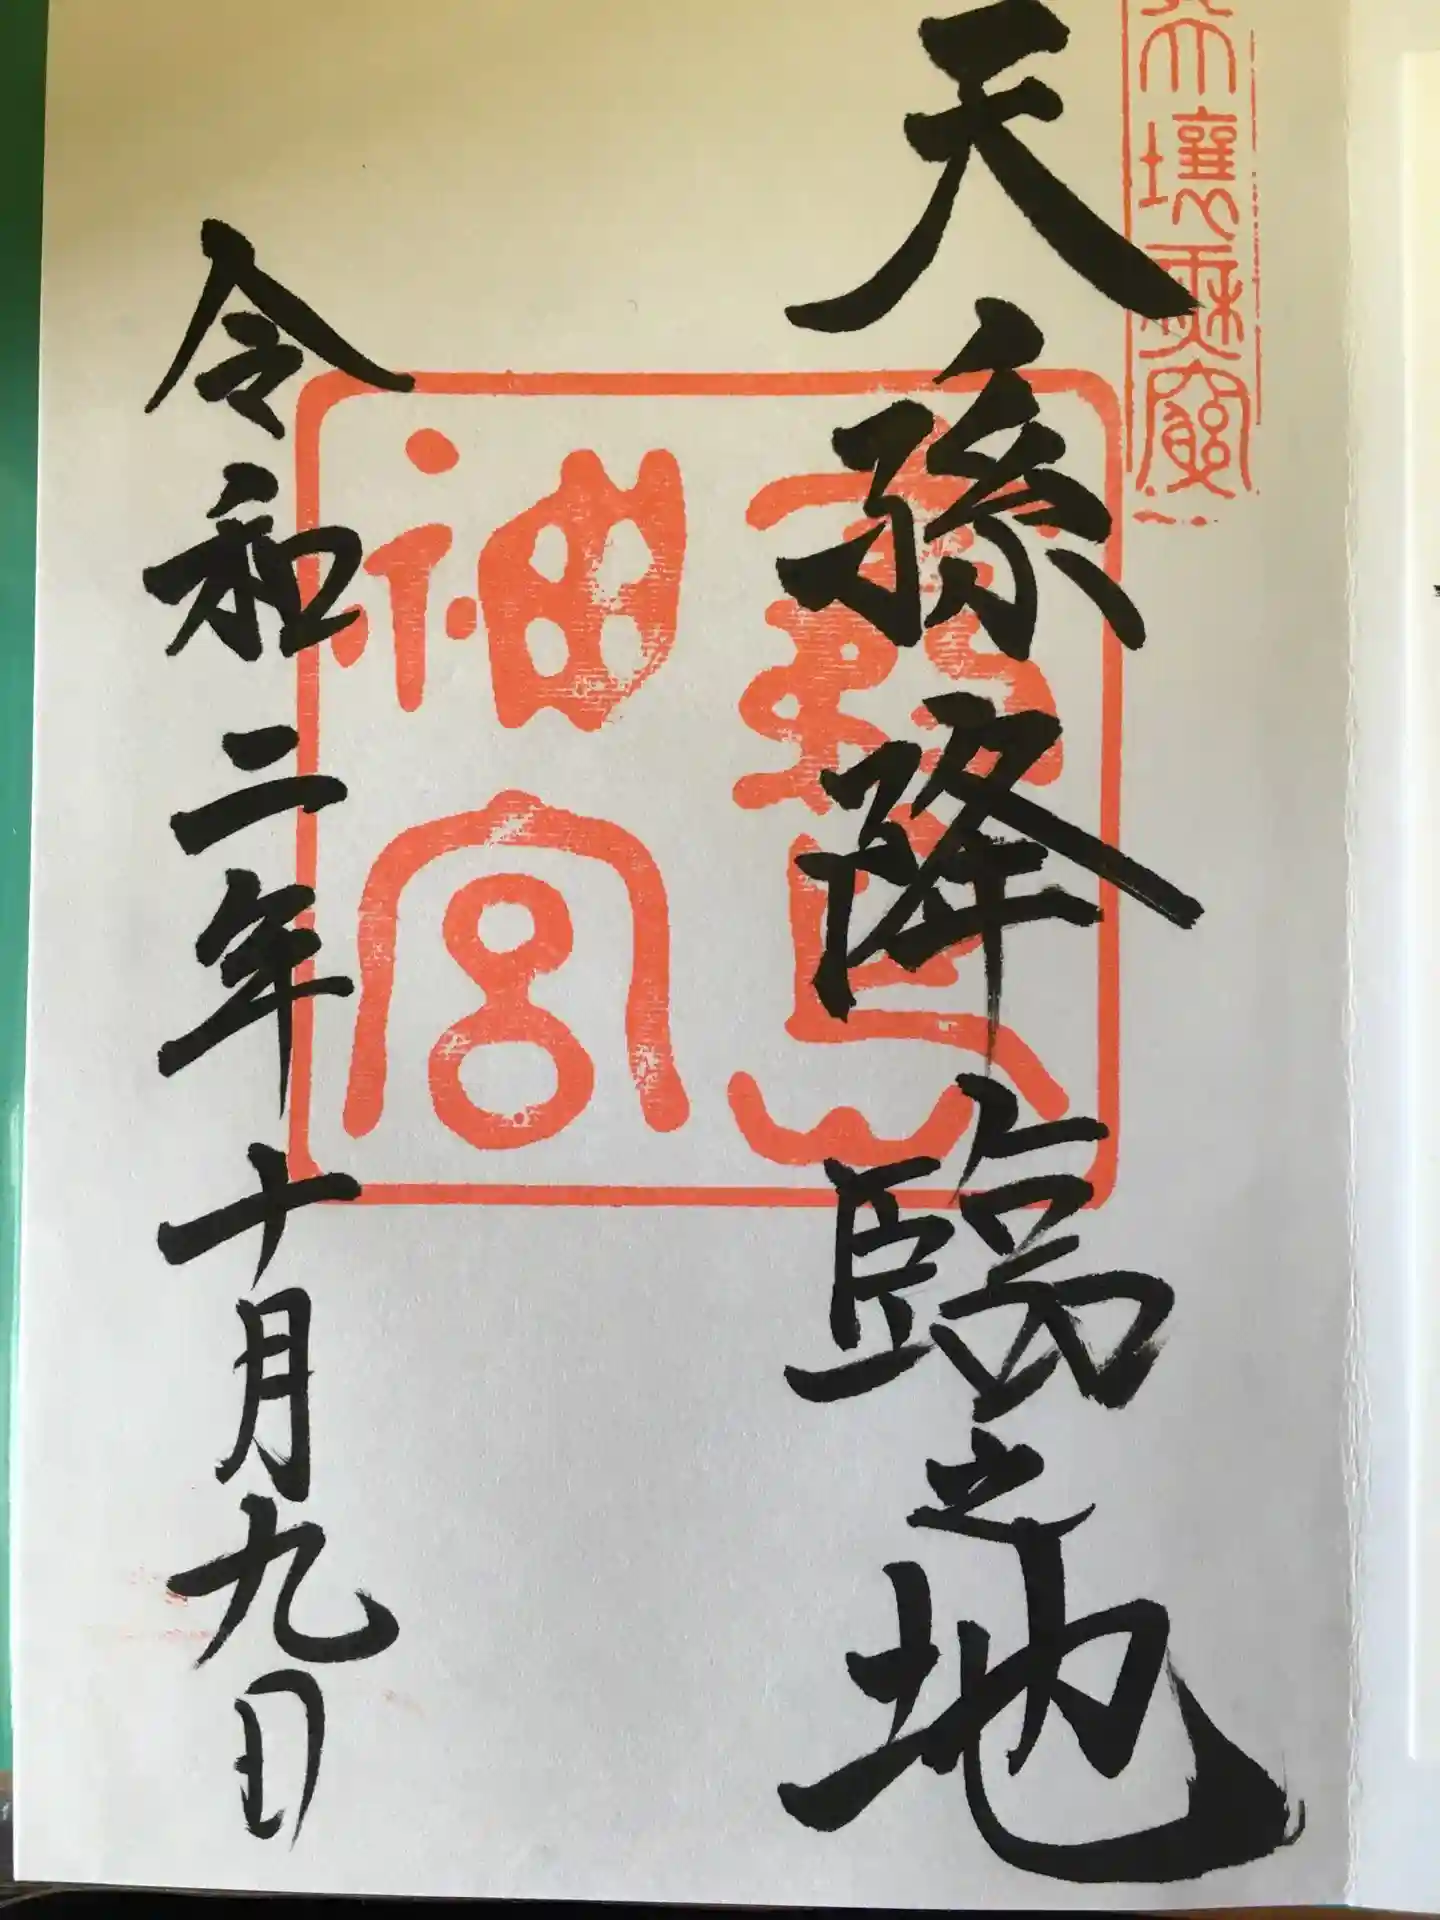 天壤無窮
天孫降臨之地
神宮
令和二年十月九日